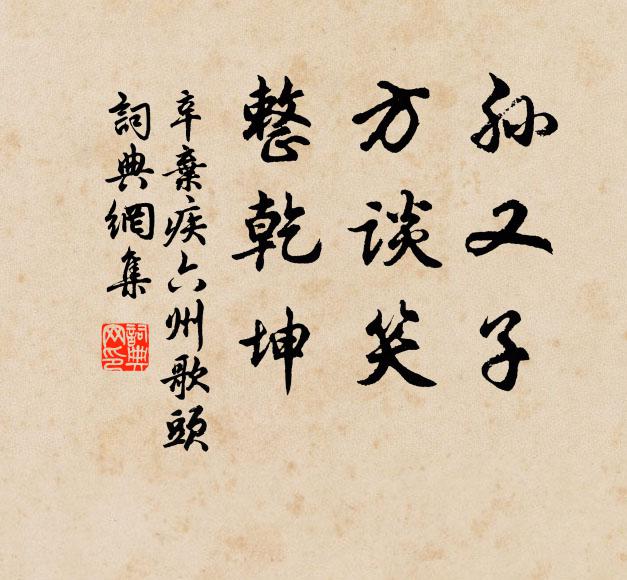 孙又子
方谈笑
整乾坤
辛棄疾六州歌頭
詞典網集
詞典网印